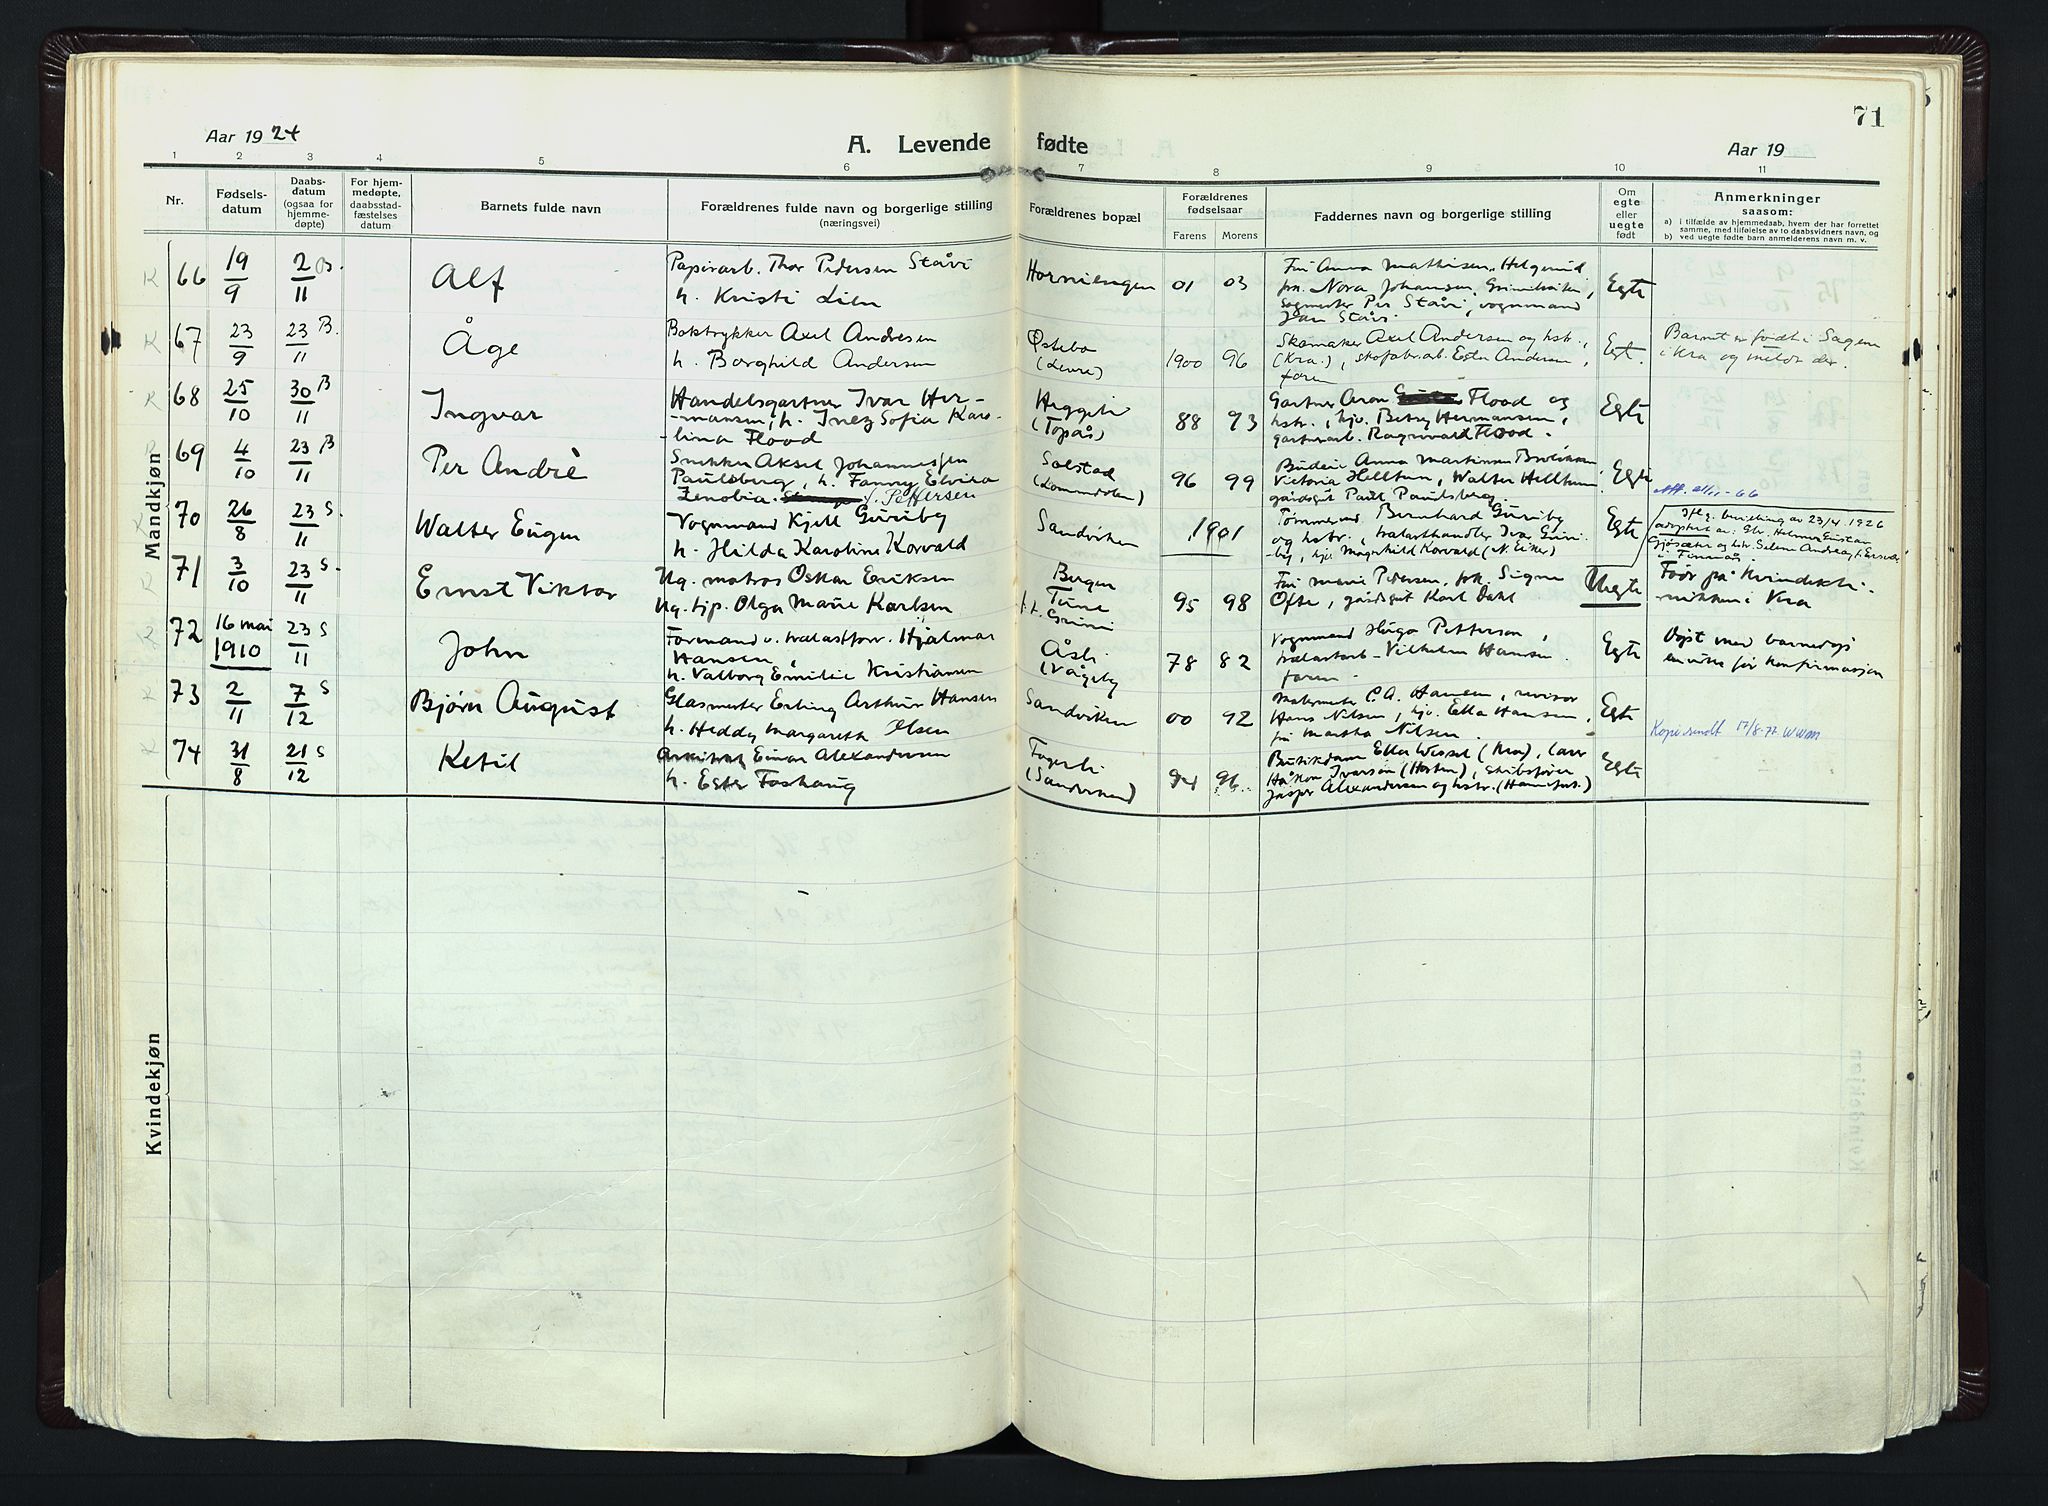 71
Aar 1924
A. Levende fødte
Aar 19
1 2 3 4 5 6 7 8 9 10 11
Nr.
Fødsels-
datum
Daabs-
datum
(ogsaa for
hjemme-
døpte)
For hjem-
medøpte,
daabsstad-
fæstelses
datum
Barnets fulde navn
Forældrenes fulde navn og borgerlige stilling
(næringsvei)
Forældrenes bopæl
Forældrenes
fødselsaar
Farens Morens
Faddernes navn og borgerlige stilling
Om
egte
eller
uegte
født
Anmerkninger
saasom:
a) i tilfælde av hjemmedaab, hvem der har forrettet
samme, med tilføielse av to daabsvidners navn, og
b) ved uegte fødte barn anmelderens navn m. v.
Mandkjøn
K 66 19/9 2/11 B. Alf
Papirarb. Thor Pedersen Ståvi
h. Kristi Lien
Horniengen 01 03
Anna Mathisen, Helgerud
frk. Nora Johansen,
Per Ståvi, vognmand
Egte
K 67 23/9 23/11 B. Åge
Boktrykker Axel Andresen
h. Borghild Andersen
Østebo
1900 96
Skomaker Axel Andersen og hstr.,
(Kra.), skofabr.arb. Andersen,
faren
Egt.
Barnet er født i Sagene
i Kra og meldt der.
K 68 25/10 30/11 B Ingvar
Handelsgartner Ivar Her-
mansen, h. Inez Sofia Karo-
lina Flood
(Topås)
88 93
Gartner Aron Flood og
hstr., hjv. Betzy Hermansen,
gartnerarb. Ragnvald Flood.
Egte
69 4/10 23/11 B Per André
Snekker Aksel Johannessen
Paulsberg, h. Fanny Elvira
Zenobia f. Pettersen
Solstad
96 99
Anna Martinsen
Victoria Helltun, Walter Helltun
gårdsgut Paulsberg.
Egte
70 26/8 23/11 S. Walter Eugen
Vognmand Kjell Guriby
h. Hilda Karoline Korvald
Sandviken
1901
Bernhard Guriby
og hstr., trælasthandler Ivar Guri-
by, hjv. Magnhild Korvald (N. Eiker)
Egte
Iflg. bevilling av 23/4 1926
71 3/10 23/11 S. Ernst Viktor
Ug. matros Oskar Eriksen
Ug. tjp. Olga Marie Karlsen
Bergen
Tune
95 98
Marie Pedersen, frk. Signe
Ofte, gårdsgut Karl Dahl
Uegte
Født på kvindekli-
nikken i Kra
72 16 mai 1910 23/11 S John
Formand v. trælastforr. Hjalmar
Hansen
h. Valborg Emilie Kristiansen
Åsli
(Vågeby
78 82
Vognmand Hugo Petterson,
trælastarb. Vilhelm Hansen
faren.
Egte
73 2/11 7/12 S Bjørn August
Glasmester Erling Arthur Hansen
h. Heddy Margareth Olsen
Sandviken
00 92
Malermester C.A. Hansen, revisor
Hans Nilsen, hjv. Ella Hansen,
frk Martha Nilsen.
Egte
Kopi sendt 17/8-77
74 31/8 21/12 S Ketil
Arkitekt Einar Alexandersen
h. Ester Foshaug
Fagerli
(Sandviken)
94 96
Butikdam Ella Wessel (Kra),
Håkon Ivarson (Horten), skibsfører
Jasper Alexandersen og hstr. (Hammerfest.)
Egte
Kvindekjøn